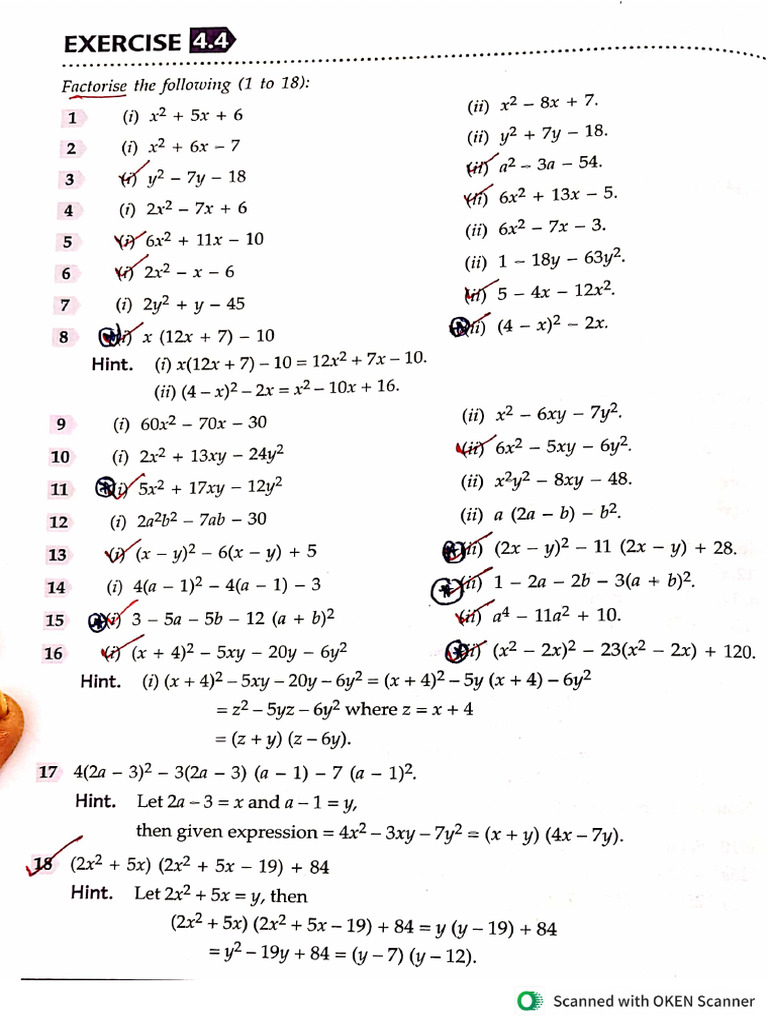 EXERCISE 4.4
Factorise the following (1 to 18):
1 (i) x² + 5x + 6 (ii) x² – 8x + 7.
2 (i) x² + 6x – 7 (ii) y² + 7y – 18.
3 (i) y² – 7y – 18 (ii) a² – 3a – 54.
4 (i) 2x² – 7x + 6 (ii) 6x² + 13x – 5.
5 (i) 6x² + 11x – 10 (ii) 6x² – 7x – 3.
6 (i) 2x² – x – 6 (ii) 1 – 18y – 63y².
7 (i) 2y² + y – 45 (ii) 5 – 4x – 12x².
8 (i) x (12x + 7) – 10 (ii) (4 – x)² – 2x.
Hint. (i) x(12x + 7) – 10 = 12x² + 7x – 10.
(ii) (4 – x)² – 2x = x² – 10x + 16.
9 (i) 60x² – 70x – 30 (ii) x² – 6xy – 7y².
10 (i) 2x² + 13xy – 24y² (ii) 6x² – 5xy – 6y².
11 (i) 5x² + 17xy – 12y² (ii) x²y² – 8xy – 48.
12 (i) 2a²b² – 7ab – 30 (ii) a (2a – b) – b².
13 (i) (x – y)² – 6(x – y) + 5 (ii) (2x – y)² – 11 (2x – y) + 28.
14 (i) 4(a – 1)² – 4(a – 1) – 3 (ii) 1 – 2a – 2b – 3(a + b)².
15 (i) 3 – 5a – 5b – 12 (a + b)² (ii) a⁴ – 11a² + 10.
16 (i) (x + 4)² – 5xy – 20y – 6y² (ii) (x² – 2x)² – 23(x² – 2x) + 120.
Hint. (i) (x + 4)² – 5xy – 20y – 6y² = (x + 4)² – 5y (x + 4) – 6y²
= z² – 5yz – 6y² where z = x + 4
= (z + y) (z – 6y).
17 4(2a – 3)² – 3(2a – 3) (a – 1) – 7 (a – 1)².
Hint. Let 2a – 3 = x and a – 1 = y,
then given expression = 4x² – 3xy – 7y² = (x + y) (4x – 7y).
18 (2x² + 5x) (2x² + 5x – 19) + 84
Hint. Let 2x² + 5x = y, then
(2x² + 5x) (2x² + 5x – 19) + 84 = y (y – 19) + 84
= y² – 19y + 84 = (y – 7) (y – 12).
Scanned with OKEN Scanner